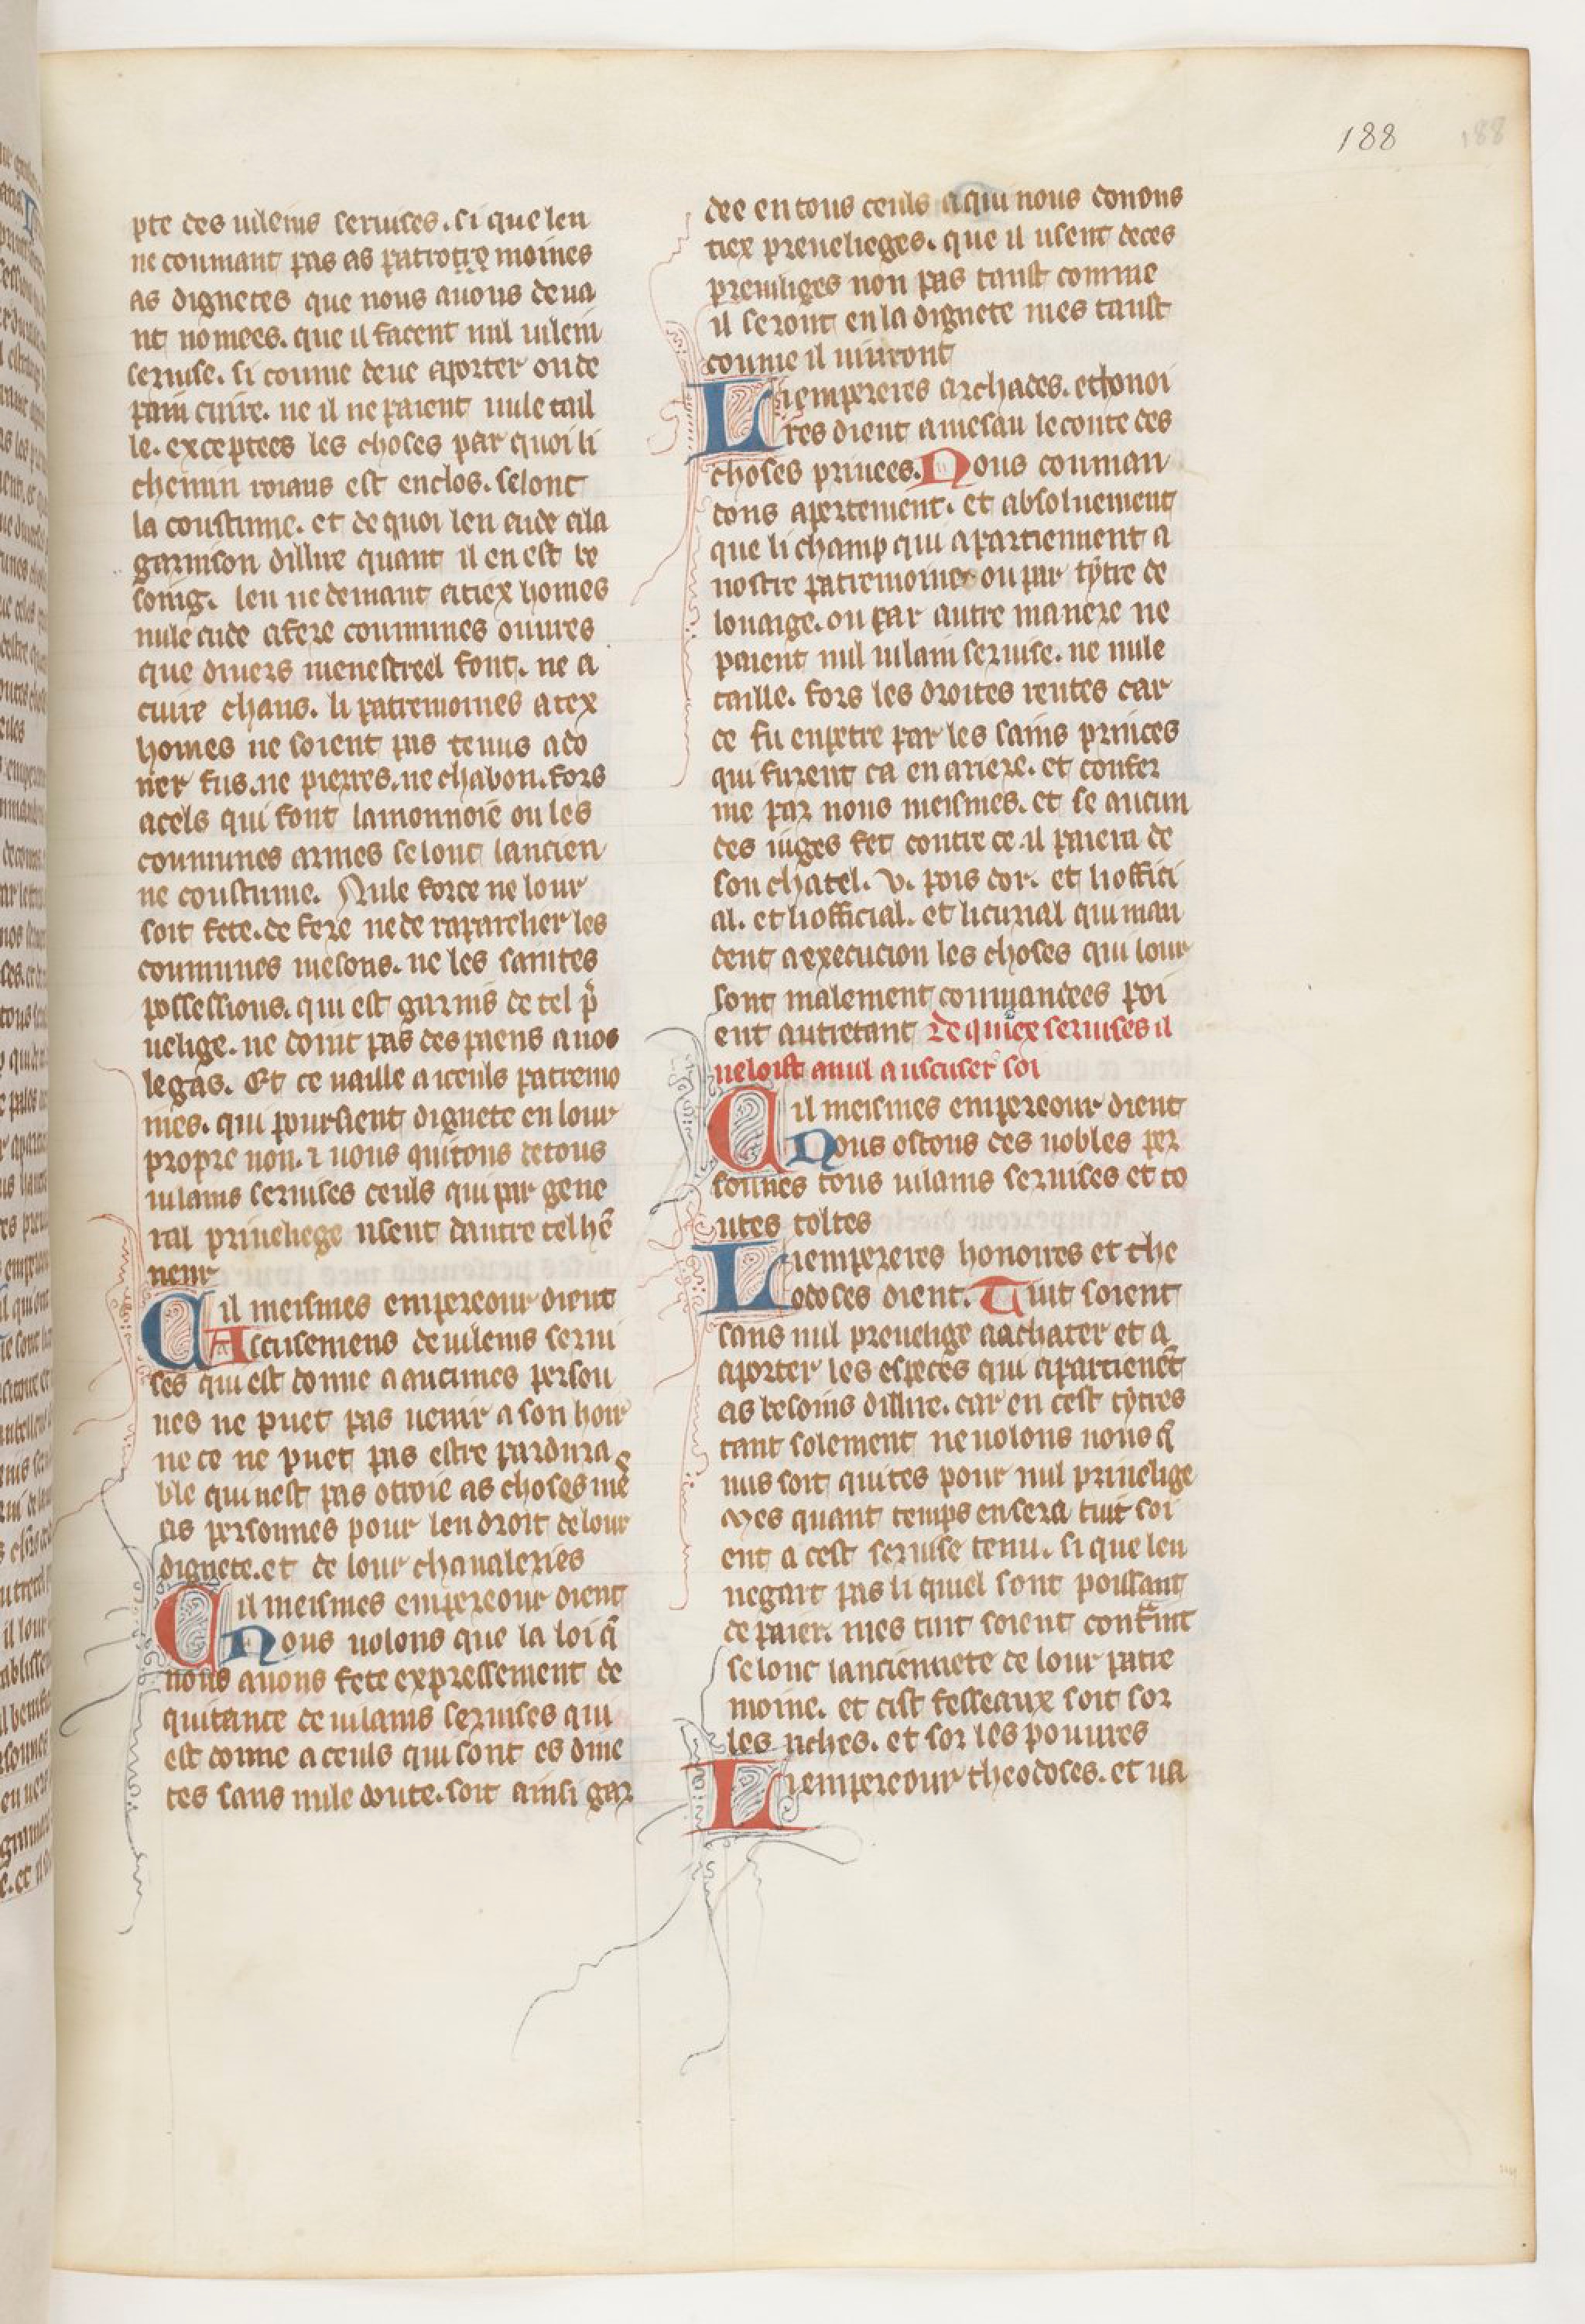 188
pte des uileins seruises. si que len
ne coumant pas as patrotre moines
as dignetes que nous auons deua
nt nomees. que il facent nul uilein
seruise. si coume deue aporter ou de
pain cuire. ne il ne paient nule tail
le. exceptees les choses par quoi li
chemin roiaus est enclos. selonc
la coustume. et de quoi len aide a la
garnison dillire quant il en est be
soing. len ne demant a tiex homes
nule aide a fere coumunes ouures
que diuers menestreel font. ne a
cuire chaus. li patremoines a tex
homes ne soient pas tenus a do
ner fus. ne pierres. ne chabon. fors
a cels qui font la monnoie ou les
coumunes armes selonc lancien
ne coustume. Nule force ne lour
soit fete. de fere ne de raparelier les
coumunes mesons. ne les saintes
possessions. qui est garnis de tel p̃
uelige. ne doint pas des paens a nos
legas. Et ce uaille a iceuls patremo
ines. qui poursient dignete en lour
propre non. ⁊ nous quitons de tous
uilains seruises ceuls qui par gene
ral priueliege usent dautre tel hẽ
neur
Cil meismes empereour dient
Ascusemens de uileins serui
ses qui est donne a aucunes person
nes ne puet pas uenir a son hoir
ne ce ne puet pas estre pardura
ble qui nest pas otroie as choses mẽs
as personnes pour len droit de lour
dignete. et de lour cheualeries
Cil meismes empereour dient
Nous uolons que la loi q̃
nous auons fete expressement de
quitance de uilains seruises qui
est donne a ceuls qui sont es dine
tes sans nule doute. soit ainsi gar
dee en tous ceuls a qui nous donons
tiex preuelieges. que il usent de ces
preuiliges non pas tanst comme
il seront en la dignete mes tanst
coume il uiuront
Li empereres archades. et honoi
res dient a mesau le conte des
choses priuees. Nous couman
dons apertement. et absoluement
que li champ qui apartiennent a
nostre patremoine ou par tytre de
louaige. ou par autre maniere ne
paient nul uilain seruise. ne nule
taille. fors les droites rentes car
ce fu enpetre par les sains princes
qui furent ca en ariere. et confer
me par nous meismes. et se aucun
des iuges fet contre ce. il paiera de
son chatel. v. pois dor. et li offici
al. et li official. et li curial qui man
dent a execucion les choses qui lour
sont malement coumandees poi
ent autretant De quiex seruises il
ne loist a nul a uscuser soi
Cil meismes empereour dient
Nous ostons des nobles per
sonnes tous uilains seruises et to
utes toltes
Li empereres honoires et the
odoses dient. Tuit soient
sans nul preuelige a achater et a
aporter les especes qui apartienẽt
as besoins dillire. car en cest tytres
tant solement ne uolons nous q̃
nus soit quites pour nul priuelige
Mes quant temps en sera tuit soi
ent a cest seruise tenu. si que len
negart pas li quel sont poissant
de paier. mes tuit soient contraint
selonc lanciennete de lour patre
moine. et cist fesseaux soit sor
les riches. et sor les pouures
Li empereour theodoses. et ua